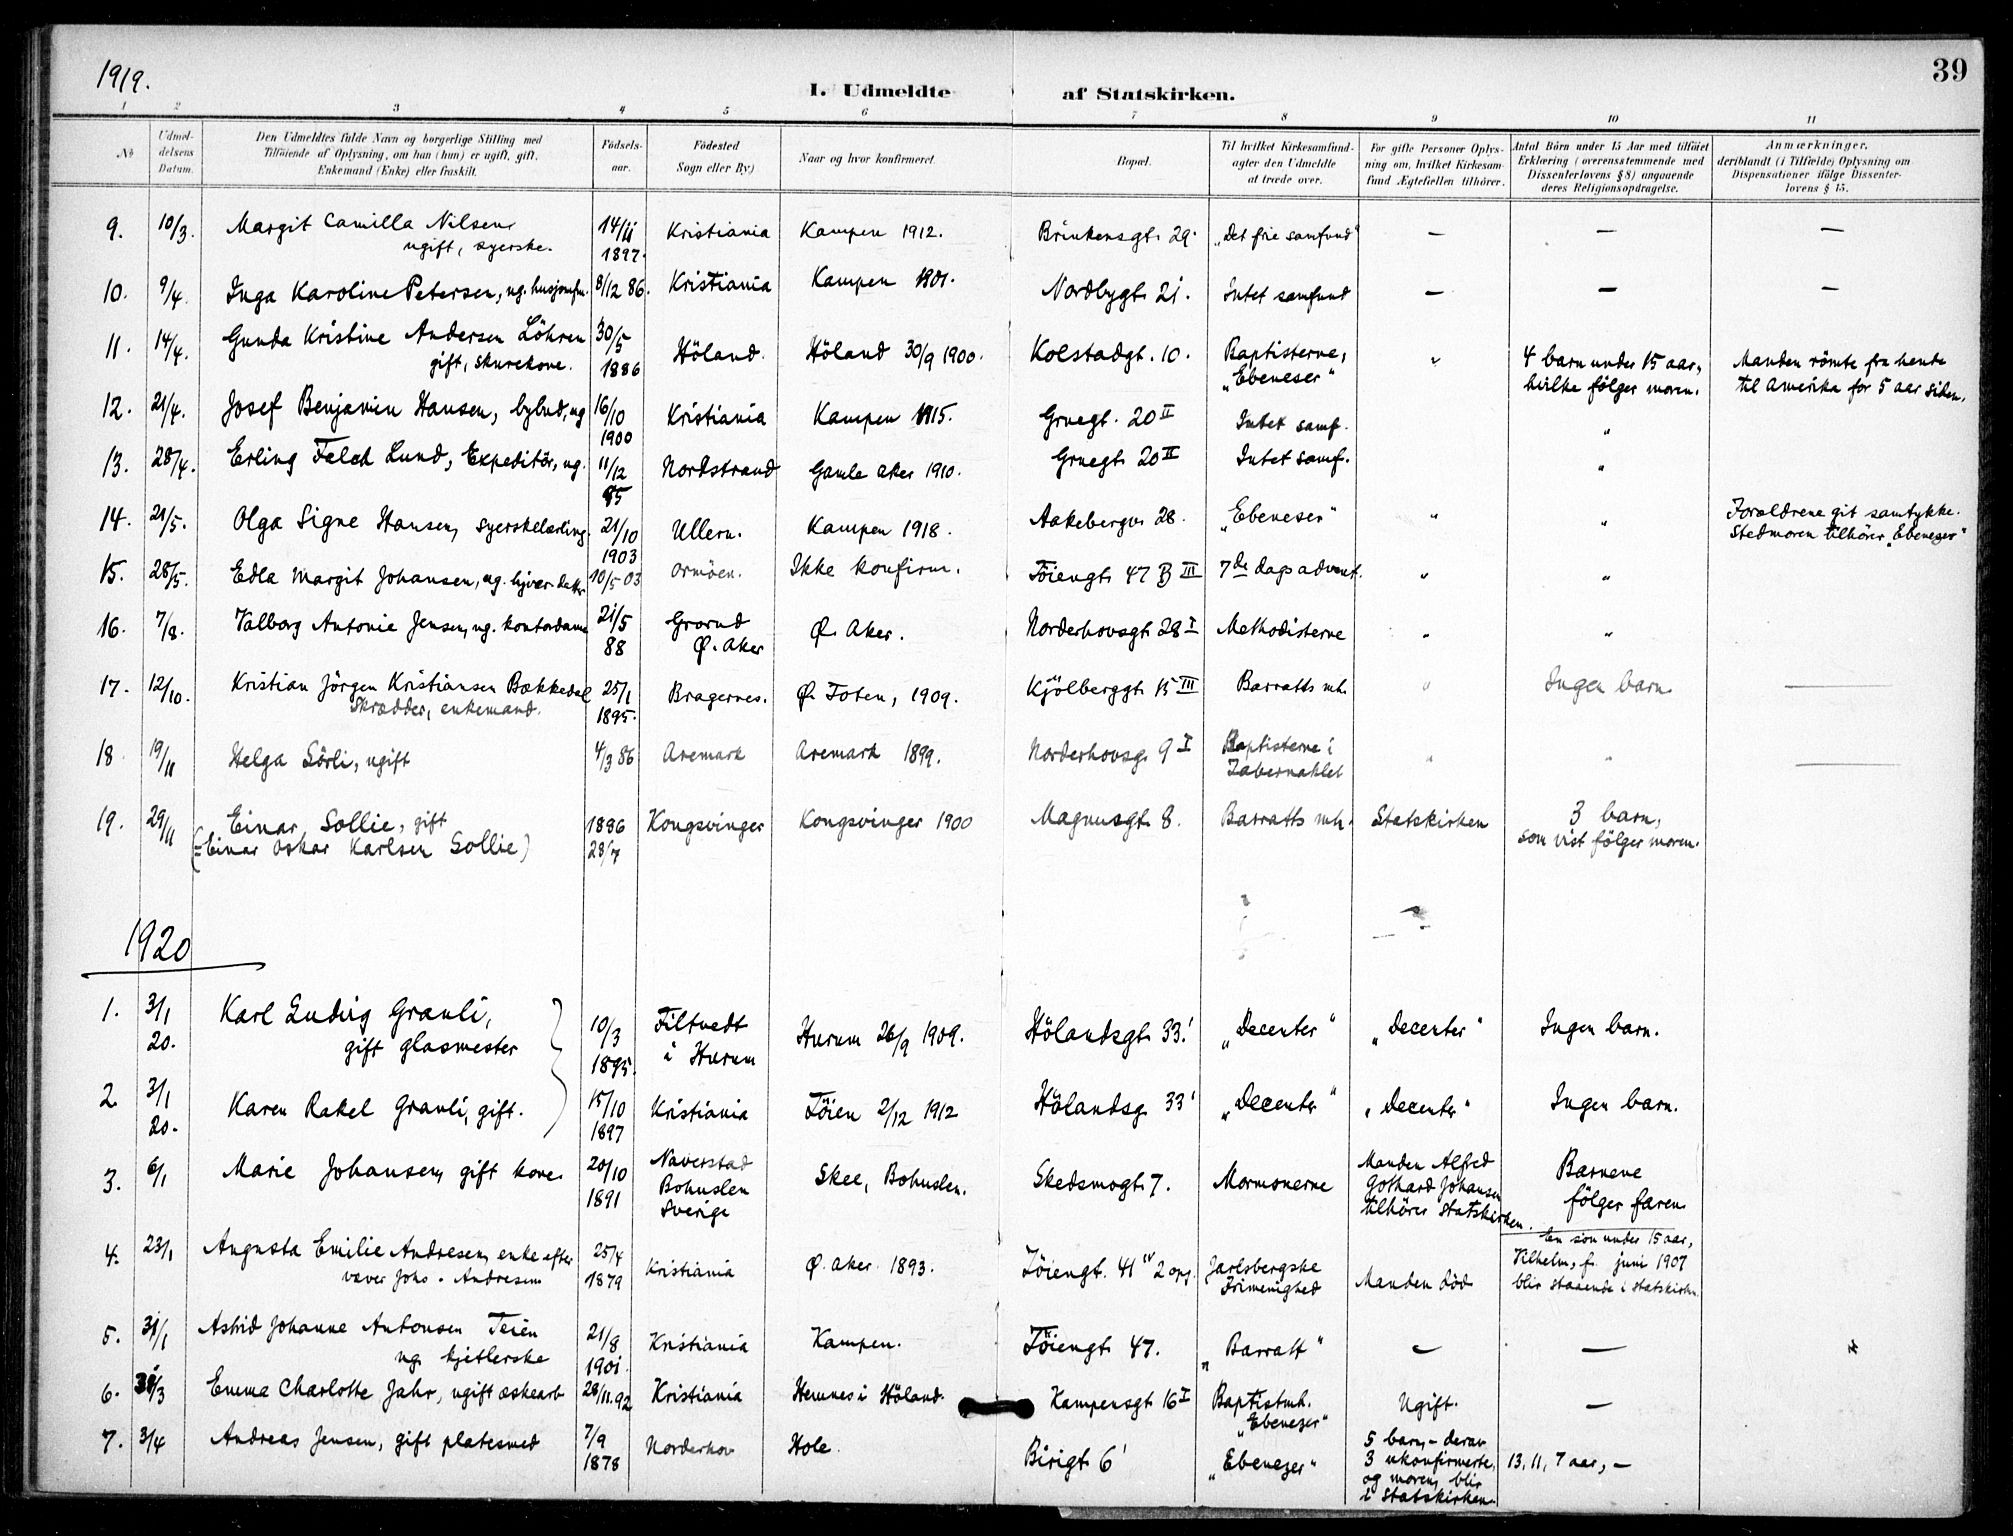 1919.
I. Udmeldte af Statskirken.
39
1 2 3 4 5 6 7 8 9 10 11
No
Udmel-
delsens
Datum.
Den Udmeldtes fulde Navn og borgerlige Stilling med
Tilföiende af Oplysning, om han (hun) er ugift, gift,
Enkemand (Enke) eller fraskilt.
Födsels-
aar.
Födested
Sogn eller By)
Naar og hvor konfirmeret.
Bopæl.
Til hvilket Kirkesamfund-
agter den Udmeldte
at træde over.
For gifte Personer Oplys-
ning om, hvilket Kirkesam-
fund Ægtefællen tilhörer.
Antal Börn under 15 Aar med tilföiet
Erklæring (overensstemmende med
Dissenterlovens § 8) angaaende
deres Religionsopdragelse.
Anmærkninger,
deriblandt (i Tilfælde) Oplysning om
Dispensationer ifölge Dissenter-
lovens § 15.
9. 10/3. Margit Camilla Nilsen, 14/11 Kristiania Kampen 1912. Brinkensgt. 29. „Det frie samfund" — — —
ugift, syerske. 1897.
10. 9/4. Inga Karoline Petersen, ug. husjomfr. 8/12 86. Kristiania Kampen 1901. Nordbygt. 21. Intet samfund — — —
11. 14/4. Gunda Kristine Andersen Löhren 30/5 Höland. Höland 30/9 1900. Kolstadgt. 10. Baptisterne, " 4 barn under 15 aar, Manden römte fra hende
gift, skurekone. 1886 „Ebeneser" hvilke fölger moren. til Amerika for 5 aar siden.
12. 21/4. Josef Benjamin Hansen, bybud, ug 16/10 Kristiania Kampen 1915. Gruegt. 20 II Intet samf. "
1900
13. 28/4. Erling Falch Lund, Expeditör, ug. 11/12 Nordstrand Gamle Aker 1910. Gruegt. 20 II Intet samf. "
85
14. 21/5. Olga Signe Hansen, syerskelærling. 21/10 Ullern. Kampen 1918. Aakebergv. 28. „Ebeneser" " " Forældrene git samtykke.
1903 Stedmoren tilhörer „Ebenezer"
15. 28/5. Edla Margit Johansen, ug. hjvær. datter 10/5 03 Ormöen. Ikke konfirm. Töiengt. 47 B III 7de dags advent. " "
16. 7/8. Valborg Antonie Jensen, ug. kontordame 21/5 Grorud Ø. Aker. Norderhovsgt. 28 I Methodisterne " "
88 Ø. Aker
17. 12/10. Kristian Jörgen Kristiansen Bækkedal 25/1 Bragernes. Ø. Toten, 1909. Kjölberggt. 15 III Barratts mh. " Ingen barn. —
Skrædder, enkemand. 1895.
18. 19/11 Helga Sörli, ugift 4/3 86 Aremark Aremark 1899. Norderhovsg. 9 I Baptisterne i " " —
Tabernaklet
19. 29/11 Einar Sollie, gift 1886 Kongsvinger Kongsvinger 1900 Magnusgt. 8. Barratts mh. Statskirken 3 barn,
(= Einar Oskar Karlsen Sollie) 28/7 som vist fölger moren.
1920
1. 3/1 Karl Ludvig Granli, 10/3 Filtvedt Hurum 26/9 1909. Hölandsgt. 33 I „Decenter" „Decenter" Ingen barn.
20. gift glasmester 1895. i Hurum
2. 3/1 Karen Rakel Granli, gift. 15/10 Kristiania Töien 2/12 1912 Hölandsg. 33 I „Decenter" „Decenter" Ingen barn.
20. 1897
3. 6/1 Marie Johansen, gift kone. 20/10 Naverstad Skee, Bohuslen. Skedsmogt. 7. Mormonerne Manden Alfred Barnene
1891 Bohuslen Gothard Johansen fölger faren
Sverige tilhörer statskirken.
4. 23/1 Augusta Emilie Andresen, enke efter 25/4 Kristiania Ø. Aker 1893. Töiengt. 41 IV 2 opg. Jarlsbergske Manden död En sön under 15 aar,
væver Johs. Andresen 1879 Frimenighed Vilhelm, f. juni 1907
blir staaende i statskirken.
5. 31/1 Astrid Johanne Antonsen Teien 21/8 Kristiania Kampen. Töiengt. 47. „Barratt" — —
ug. kjetlerske 1901.
6. 31/3 Emma Charlotte Jahr, ugift æskearb 28/11.92 Kristiania Hemnes i Höland. Kampensgt. 16 I Baptistmh. Ugift. —
„Ebenezer"
7. 3/4 Andreas Jensen, gift platesmed 7/9 Norderhov Hole. Birigt. 6 I „Ebenezer" 5 barn, - derav 13, 11, 7 aar, —
1878 3 ukonfirmerte,
og moren, blir
i Statskirken.